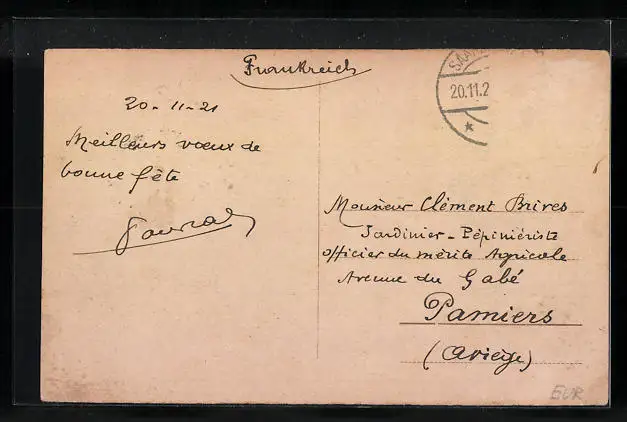 Frankreich
SAAR
20.11.2
20-11-21
Meilleurs vœux de
bonne fête
Monsieur Clément Brives
Jardinier-Pépiniériste
officier du mérite Agricole
Avenue du Gabé
Pamiers
(Ariège)
EUR